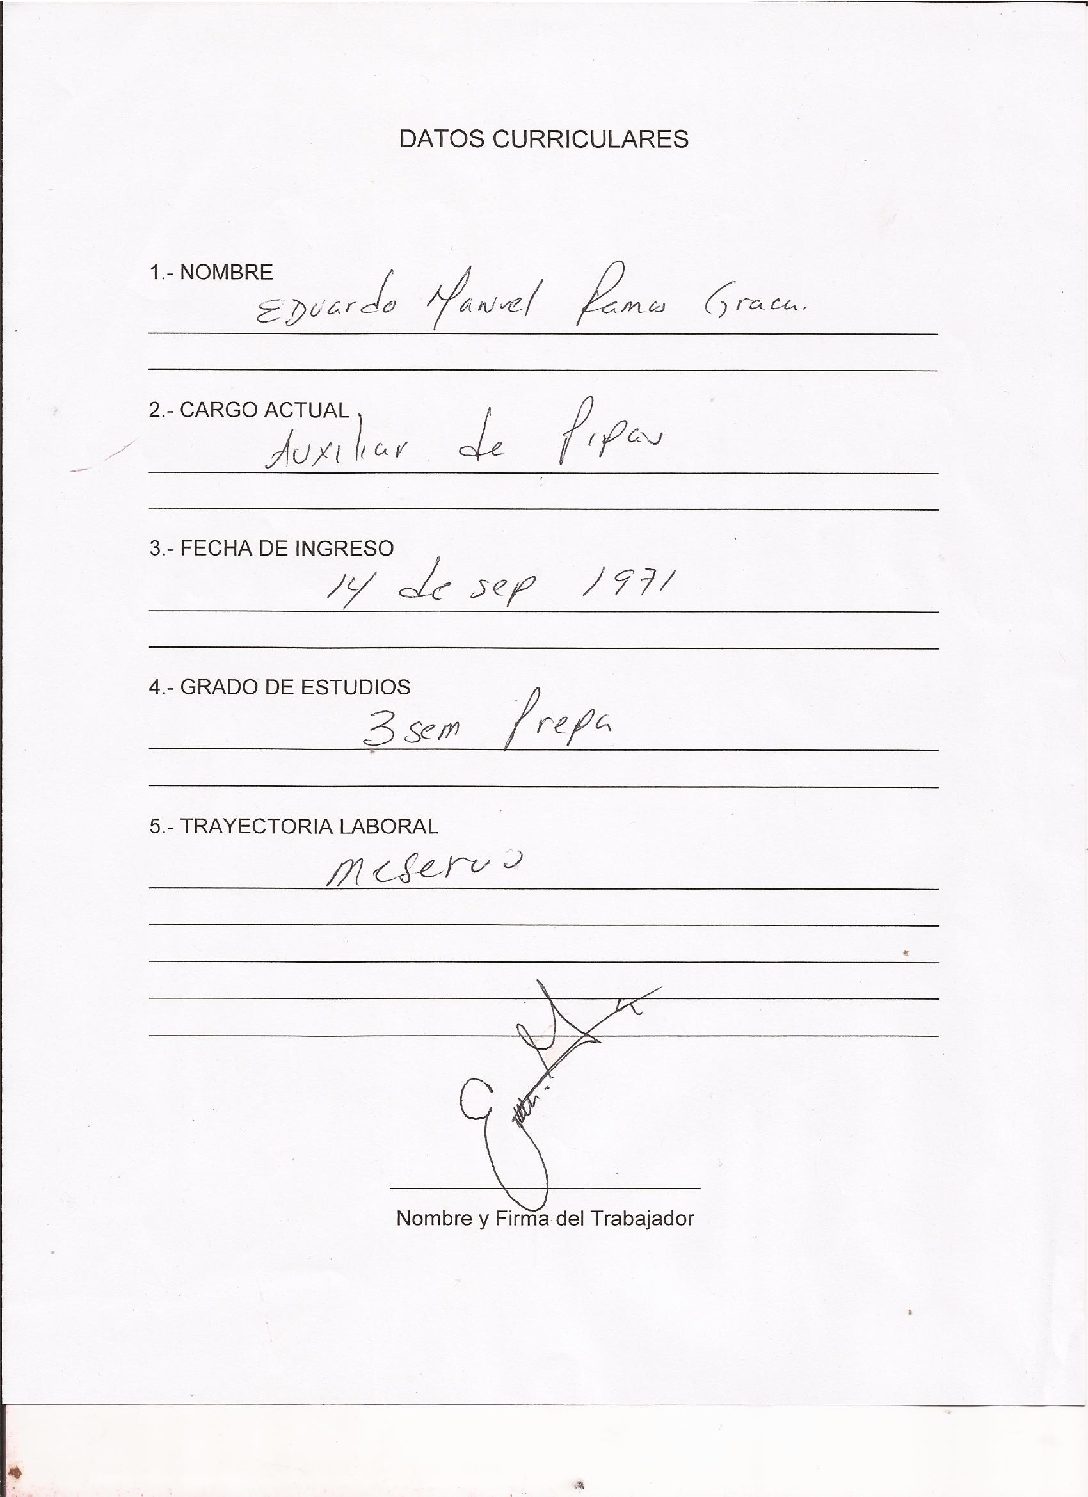 DATOS CURRICULARES
1.- NOMBRE
Eduardo Manuel Ramos
2.- CARGO ACTUAL
Auxiliar de Pipas
3.- FECHA DE INGRESO
14 de sep 1971
4.- GRADO DE ESTUDIOS
3 sem Prepa
5.- TRAYECTORIA LABORAL
me reservo
Nombre y Firma del Trabajador